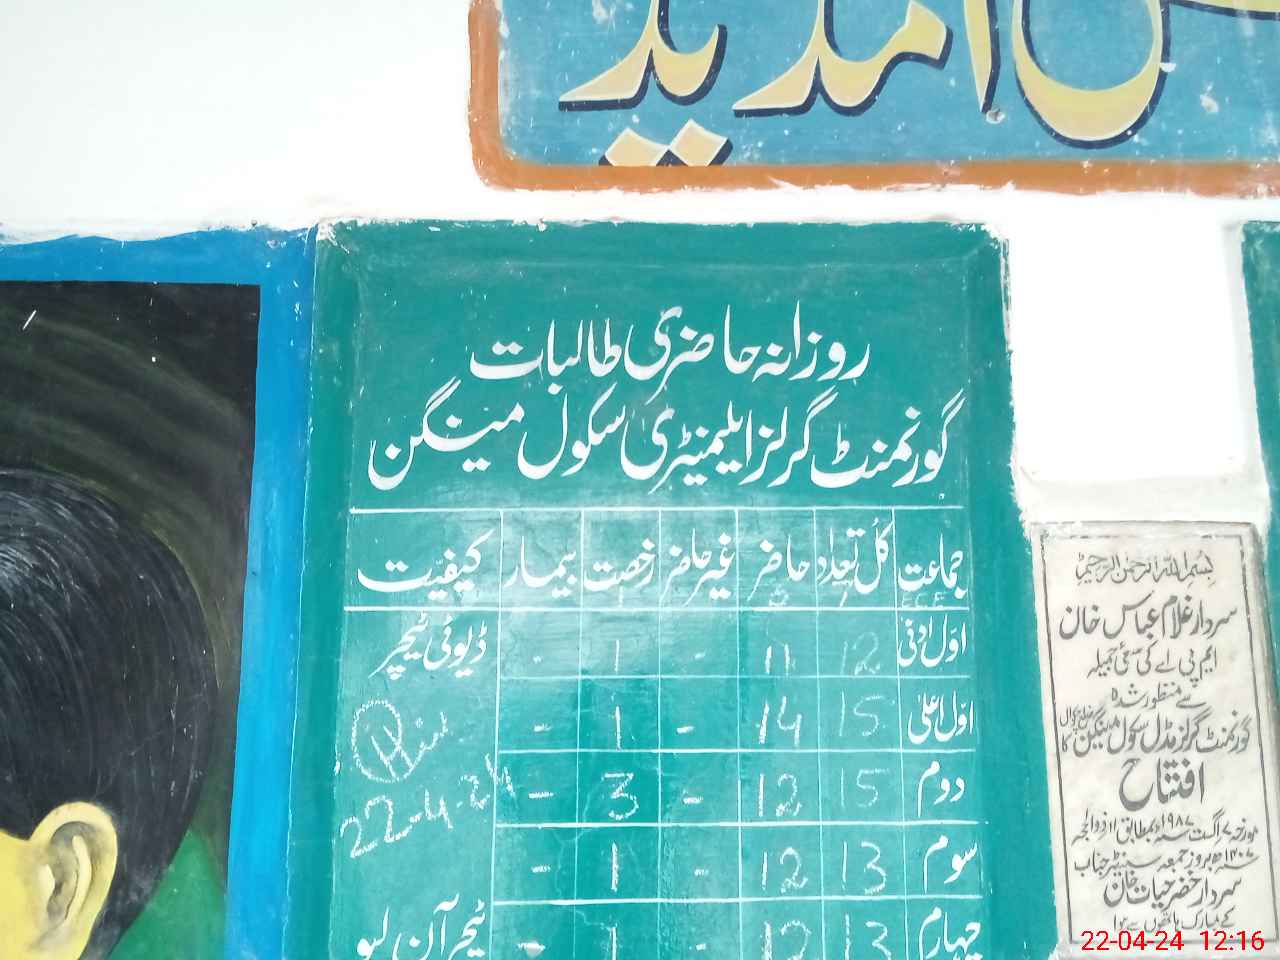 خوش آمدید
روزانہ حاضری طالبات
گورنمنٹ گرلز ایلیمنٹری سکول مینگن
جماعت کُل تعداد حاضر غیر حاضر رخصت بیمار کیفیت
ECE
اوّل ادنیٰ 12 11 - 1 - ڈیوٹی ٹیچر
اوّل اعلیٰ 15 14 - 1 -
دوم 15 12 - 3 - 22-4-24
سوم 13 12 - 1 -
چہارم 13 12 - 1 - ٹیچر آن لیو
بسم اللہ الرحمن الرحیم
سردار غلام عباس خان
ایم پی اے کی سعئی جمیلہ
سے منظور شدہ
گورنمنٹ گرلز مڈل سکول مینگن ضلع چکوال کا
افتتاح
مورخہ ۷ اگست ۱۹۸۷ء بمطابق ۱۱ ذوالحجہ
۱۴۰۷ھ بروز جمعہ سنیٹر جناب
سردار خضر حیات خان
کے مبارک ہاتھوں سے ہوا
22-04-24 12:16